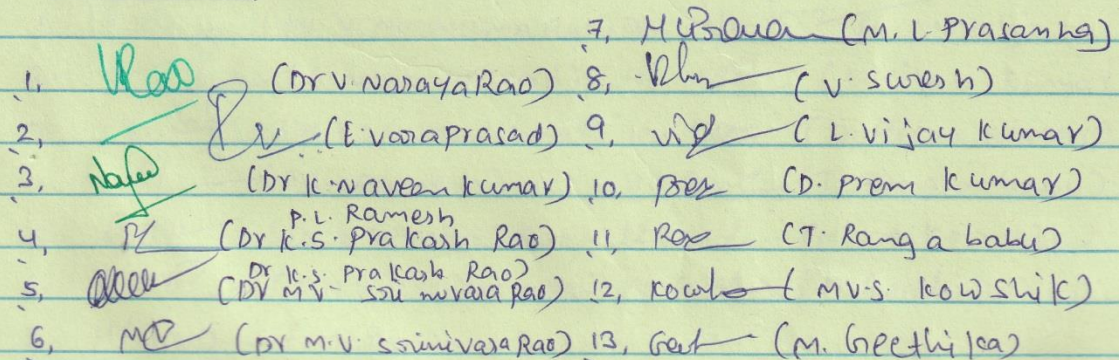 1, VRao (Dr V. Narayana Rao)
2, (E. varaprasad)
3, (Dr K. Naveen kumar)
P. L. Ramesh
4, (Dr K.S. Prakash Rao)
Dr K.S. Prakash Rao)
5, (Dr M.V. Srinivasa Rao)
6, (Dr M.V. Srinivasa Rao)
7, (M. L. Prasanna)
8, (V. Suresh)
9, (L. Vijay Kumar)
10, (D. Prem Kumar)
11, Rao (T. Ranga babu)
12, (MV.S. KOWSHIK)
13, Geet (M. Geethika)